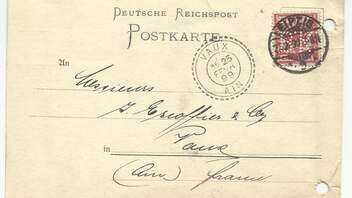 DEUTSCHE REICHSPOST
POSTKARTE
An
Messieurs
J. Escoffier & Cie
in Vaux
(Ain) France
VAUX
25
99
AIN
LEIPZIG